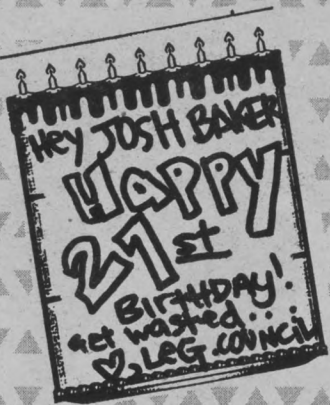 Hey JOSH BAKER
HAPPY
21st
BIRTHDAY!
get wasted...
♡, LEG. COUNCIL